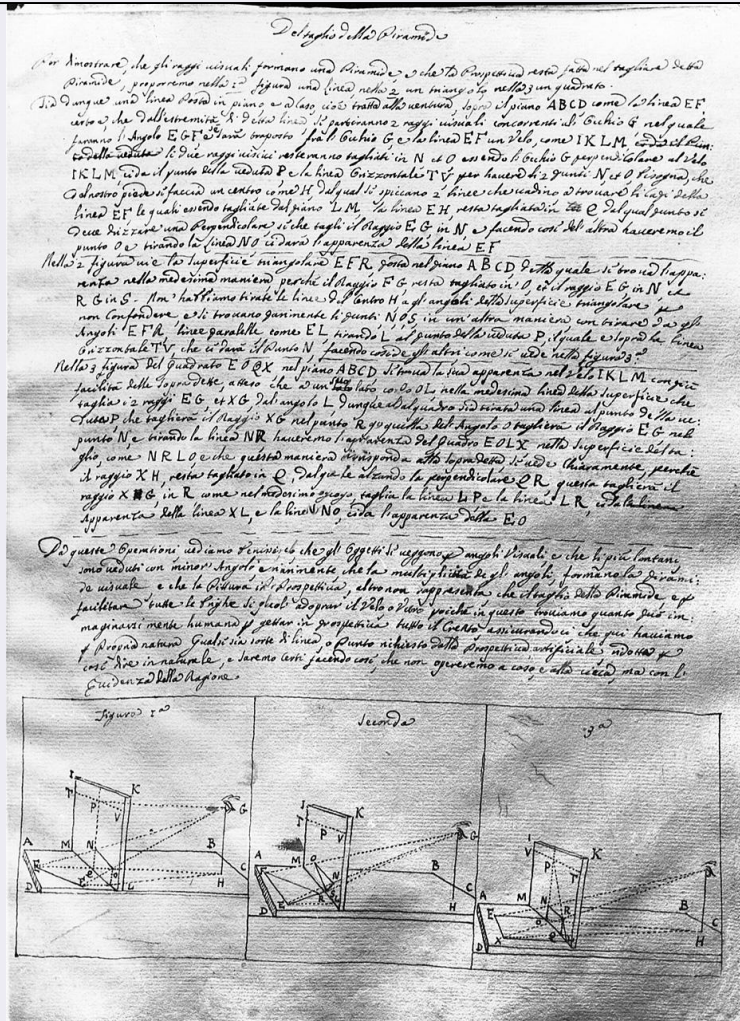 Del taglio della Piramide
Per dimostrare, che gli raggi visuali formano una Piramide e che la Prospettiva resta fatta nel tagliare detta
Piramide, proporremo nella 1ª figura una linea nella 2 un triangolo nella 3 un quadrato.
Sia dunque una linea Posta in piano e a caso, cioè tratta alla ventura, sopra il piano ABCD come la linea EF
certo è, che dall'estremità di detta linea si partiranno 2 raggi visuali concorrenti al Occhio G nel quale
faranno l'Angolo EGF e sarà traposto fra l'Occhio G, e la linea EF un Velo, come IKLM,
li due raggi visivi resteranno tagliati in N et O essendo l'Occhio G perpendicolare al Velo
IKLM ci da il punto della veduta P e la linea Orizzontale TV per havere li 2 punti N et O bisogna, che
dal nostro piede si faccia un centro come H dal qual si spiccano 2 linee che vadino a trovare li capi della
linea EF le quali essendo tagliate dal piano LM la linea EH, resta tagliata in Q dal qual punto si
deve drizzare una Perpendicolare si che tagli il Raggio EG in N e facendo così del altra haveremo il
punto O e tirando la linea NO ci darà l'apparenza della linea EF
Nella 2 figura vi è la superficie triangolare EFR, posta nel piano ABCD, della quale si trova l'appa:
renza nella medesima maniera, perché il Raggio FG resta tagliato in O, et il raggio EG in N et
RG in S. Non habbiamo tirate le linee del Centro H a gli angoli della superficie triangolare p
non confondere e si trovano parimente li punti NOS in un'altra maniera con tirare da gli
Angoli EFR linee paralelle come EL tirando L al punto della veduta P, il quale è sopra la linea
Orizzontale TV che ci darà il Punto N facendo così de gli altri come si vede nella figura 3ª
Nella 3 figura del Quadrato EOQX nel piano ABCD si trova la sua apparenza nel Velo IKLM con più
facilità delle sopradette, atteso che à un suo lato co lo OL, nella medesima linea della superficie che
taglia i 2 raggi EG et XG dal angolo L dunque dal quadro sia tirata una linea al punto della ve:
duta P che taglierà il Raggio XG nel punto R q. quella del Angolo O taglierà il Raggio EG nel
punto N e tirando la linea NR haveremo l'apparenza del Quadro EOLX nella superficie del ta:
glio, come NRLO e che questa maniera corrisponda alla sopradetta si vede chiaramente, perché
il raggio XH, resta tagliato in Q, dal quale alzando la perpendicolare QR questa taglierà il
raggio XG in R come nel medesimo taglia la linea LP e la linea LR,
Apparenza della linea XL, e la linea NO, ci da l'apparenza della EO
Da queste Operationi vediamo che gli Oggetti si veggono p angoli visuali, e che li più lontani
sono veduti con minor Angolo e parimente che la multiplicità de gli angoli, formano la Pirami:
de visuale e che la Pittura et Prospettiva, altro non rappresenta che il taglio della Piramide e p
facilitare tutte le si puol adoprar il Velo o Vetro poiché in questo troviamo quanto può im:
maginarsi mente humana p gettar in prospettiva tutto il Creato assicurandoci che qui haviamo
p Propria natura Qualsisia sorte di linea, o Punto richiesto dalla Prospettiva artificiale ridotta p
così dire in naturale, e saremo certi facendo così, che non opereremo a caso, e alla cieca, ma con l'
Evidenza della Ragione.
Figura 1ª
Seconda
3ª
I T P V K G A M N B E Q O C D F L H
I T P V K G A M O B F N C D E R S L H
I V P T K G A M N R B E O C D X Q L H